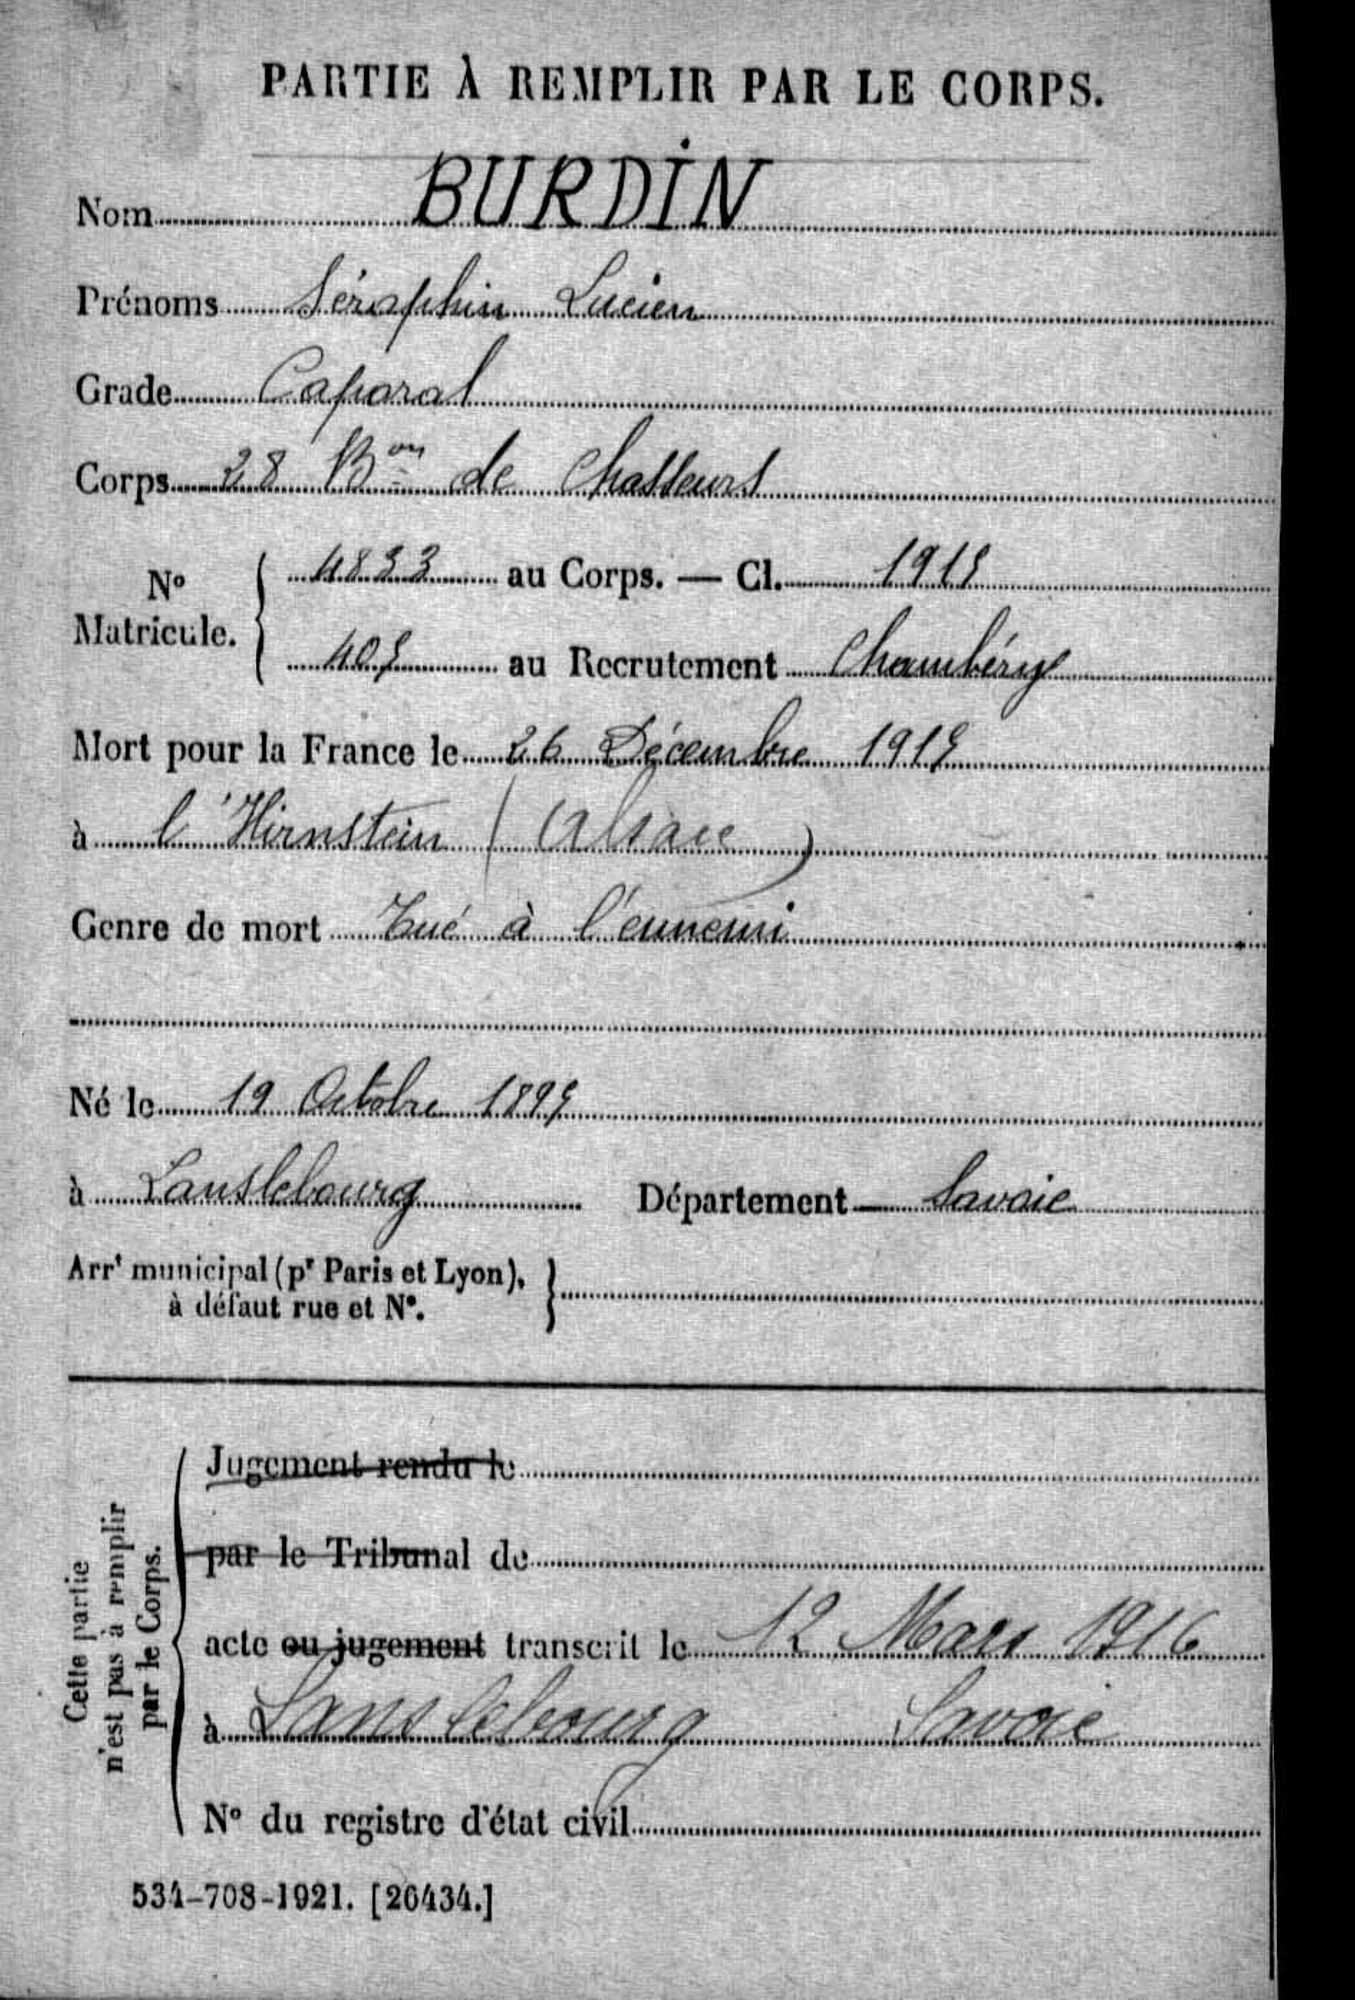 PARTIE À REMPLIR PAR LE CORPS.
Nom BURDIN
Prénoms Séraphin Lucien
Grade Caporal
Corps 28 Bon de Chasseurs
No Matricule. { 4833 au Corps. — Cl. 1915
405 au Recrutement Chambéry
Mort pour la France le 26 Décembre 1915
à l'Hirnstein (Alsace)
Genre de mort Tué à l'ennemi
Né le 19 Octobre 1895
à Lanslebourg Département — Savoie
Arrt municipal (pr Paris et Lyon), }
à défaut rue et N°.
Cette partie
n'est pas à remplir
par le Corps.
Jugement rendu le
par le Tribunal de
acte ou jugement transcrit le 12 Mars 1916
à Lanslebourg Savoie
N° du registre d'état civil
534-708-1921. [26434.]